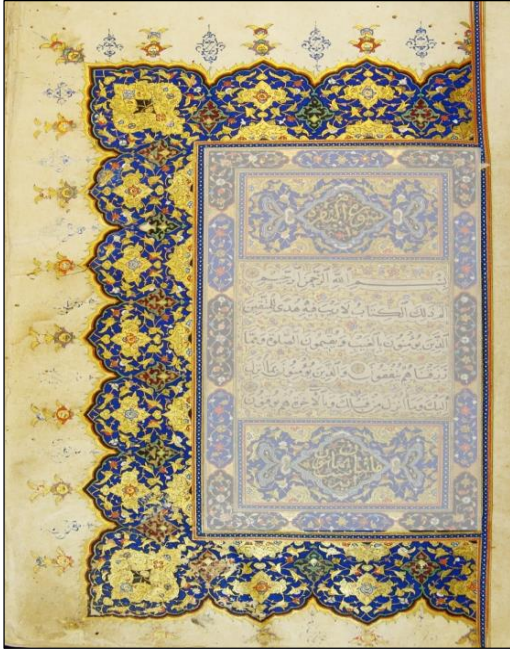 سورة البقرة
بسم الله الرحمن الرحيم
الم ذلك الكتاب لا ريب فيه هدى للمتقين
الذين يؤمنون بالغيب ويقيمون الصلوة ومما
رزقناهم ينفقون والذين يؤمنون بما انزل
اليك وما انزل من قبلك وبالاخرة هم يوقنون